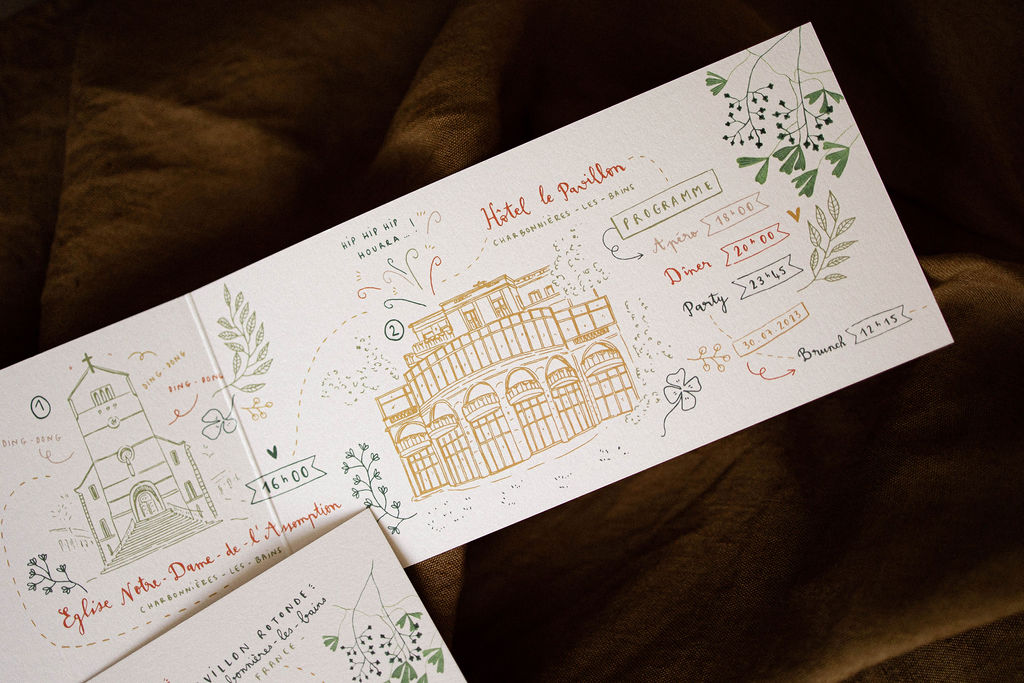 1
DING-DONG
DING-DONG
DING-DONG
16h00
Eglise Notre-Dame-de-l'Assomption
CHARBONNIÈRES-LES-BAINS
HIP HIP HIP
HOURRA...
2
Hôtel le Pavillon
CHARBONNIÈRES-LES-BAINS
PROGRAMME
Apéro 18h00
Dîner 20h00
Party 23h45
30.07.2023
Brunch 12h15
VILLON ROTONDE
bonnières-les-bains
FRANCE